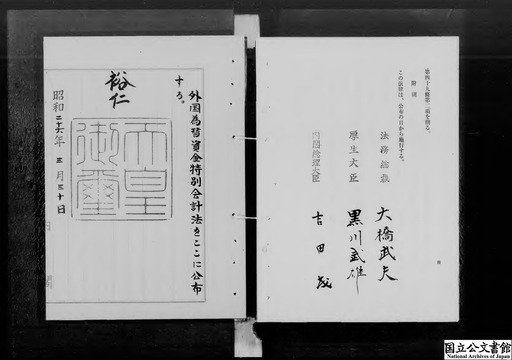 第四十九條第二項を削る。
附則
この法律は、公布の日から施行する。
法務総裁 大橋武夫
厚生大臣 黒川武雄
内閣総理大臣 吉田茂
外国為替資金特別会計法をここに公布
する。
裕仁
天皇御璽
昭和二十六年三月三十日
国立公文書館
National Archives of Japan